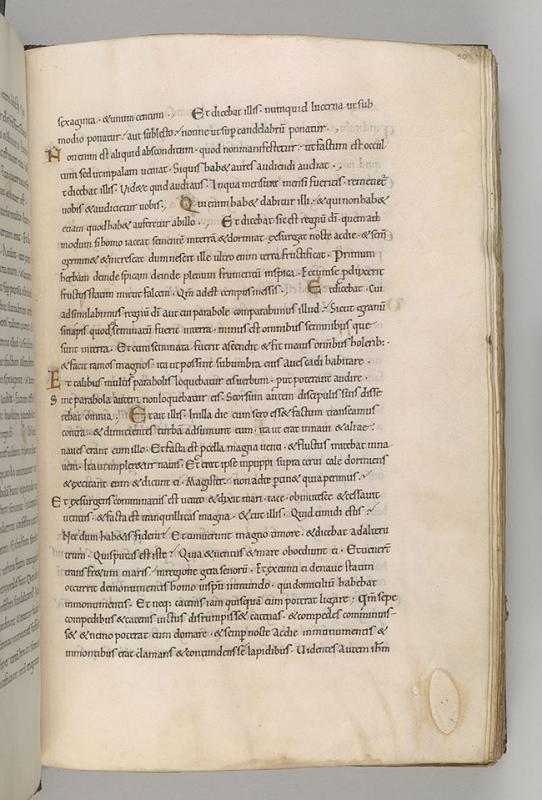 sexaginta · & unum centum · Et dicebat illis · numquid lucerna ut sub
modio ponatur · aut sub lecto · nonne ut sup candelabrū ponatur ·
Non enim est aliquid absconditum · quod non manifestetur · ut factum est occul
tum sed ut in palam veniat · Siquis hab& aures audiendi audiat ·
& dicebat illis · Vid&e quid audiatis · In qua mensura mensi fueritis · remeti&
uobis & audicietur uobis · Qui enim hab& dabitur illi · & qui non hab&
etiam quod hab& auferetur ab illo · Et dicebat sic est regnū dī · quem ad
modum si homo iaciat semente in terrā & dormiat · exsurgat nocte ac die · & sem
germin& & increscat dum nescit ille ultro enim terra fructificat · Primum
herbam deinde spicam deinde plenum frumentū in spica · Et cum se pduxerit
fructus statim mittit falcem · Qm̄ adest tempus messis · Et dicebat · Cui
adsimilabimus regnū dī aut cui parabole comparabimus illud · Sicut granū
sinapis quod seminatū fuerit in terra · minus est omnibus seminibus que
sunt in terra · Et cum seminatū fuerit ascendit & fit maius omnibus holerib:
& facit ramos magnos · ita ut possint sub umbra eius aues caeli habitare ·
Et talibus multis parabolis loquebatur eis uerbum · put poterant audire ·
Sine parabola autem non loquebatur eis · Seorsum autem discipulis suis disse
rebat omnia · Et ait illis · In illa die cum sero ess& factum transeamus
contra · & dimittentes turbā adsumunt eum · ita ut erat in naui & aliae
naues erant cum illo · Et facta est pcella magna uenti · & fluctus mittebat in na
uem · Ita ut impler&ur nauis · Et erat ipse in puppi supra ceruical dormiens
& excitant eum & dicunt ei · Magister · non ad te ptin& quia perimus ·
Et exsurgens comminatus est uento & dixit mari · tace · obmutesce & cessauit
uentus · & facta est tranquillitas magna · & ait illis · Quid timidi estis ·
Necdum hab&is fidem · Et timuerunt magno timore · & dicebat ad alteru
trum · Quis putas est iste · Quia & uentus & mare oboediunt ei · Et uener
trans fr&um maris · in regione gerasenorū · Et exeunti ei de naui statim
occurrit de monumentis homo in spū inmundo · qui domiciliū habebat
in monumentis · Et neq; catenis iam quisquā eum poterat ligare · Qm̄ sepe
compedibus & catenis uinctus disrupiss& catenas · & compedes comminuis-
s& & nemo poterat eum domare · & semp nocte ac die in monumentis &
in montibus erat clamans & concidens se lapidibus · Videns autem ihm̄